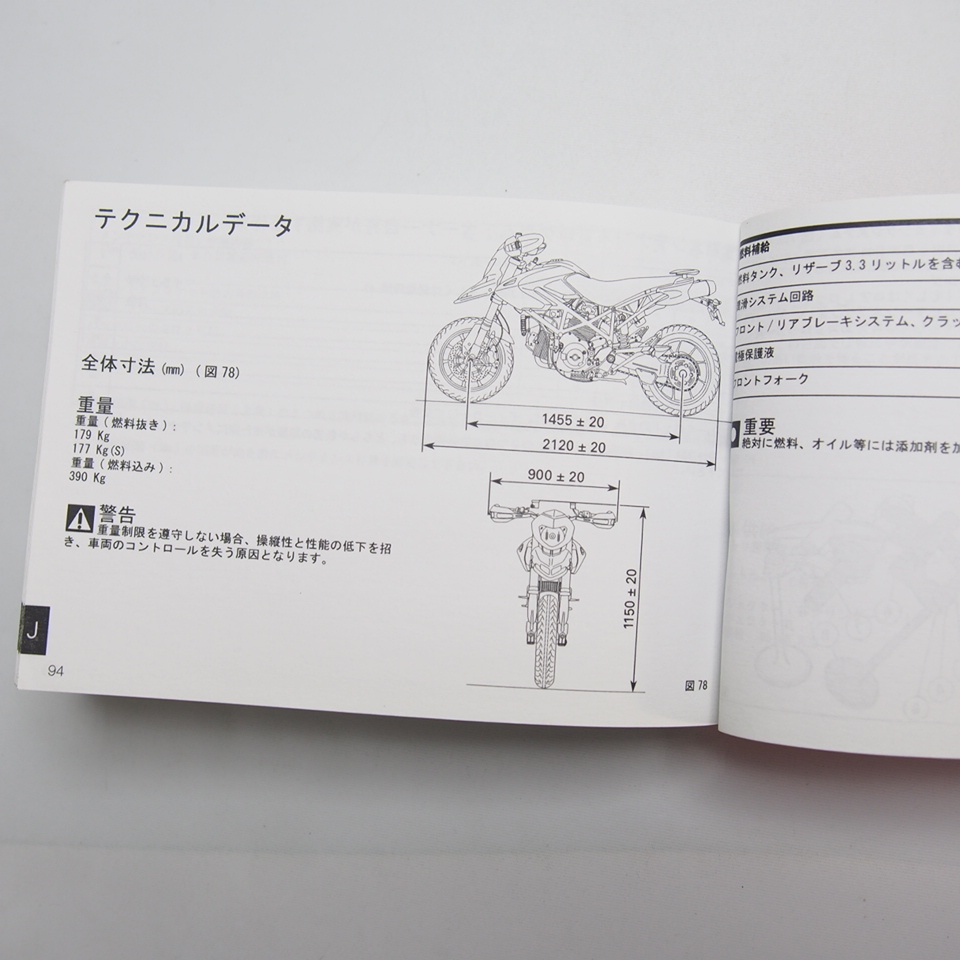 テクニカルデータ
全体寸法 (mm) (図 78)
重量
重量 (燃料抜き) :
179 Kg
177 Kg(S)
重量 (燃料込み) :
390 Kg
警告
重量制限を遵守しない場合、操縦性と性能の低下を招
き、車両のコントロールを失う原因となります。
1455 ± 20
2120 ± 20
900 ± 20
1150 ± 20
図 78
J
94
燃料補給
燃料タンク、リザーブ 3.3 リットルを含む
潤滑システム回路
フロント/リアブレーキシステム、クラッ
保護液
フロントフォーク
重要
絶対に燃料、オイル等には添加剤を加